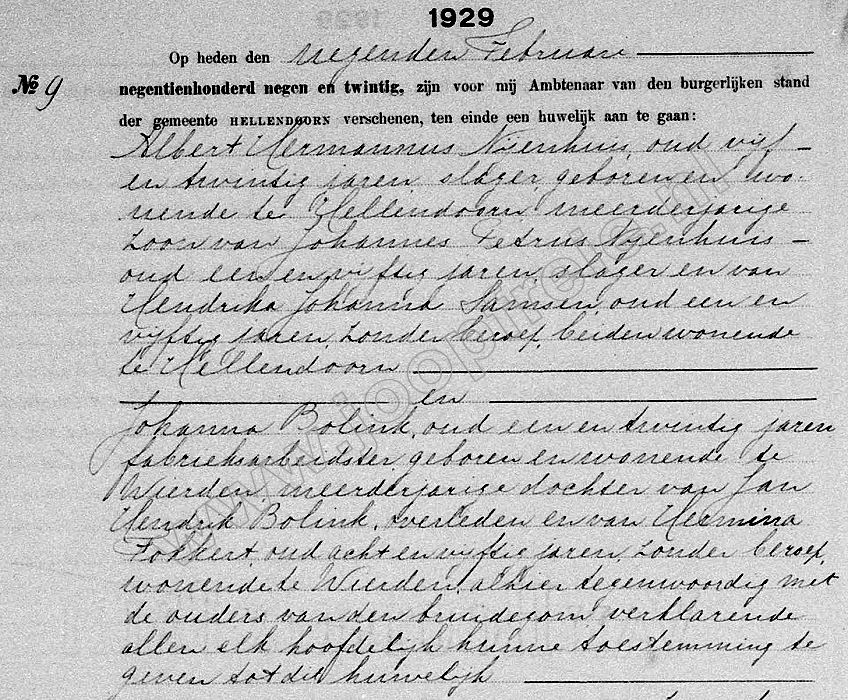 1929
Op heden den negenden Februari
No 9
negentienhonderd negen en twintig, zijn voor mij Ambtenaar van den burgerlijken stand
der gemeente HELLENDOORN verschenen, ten einde een huwelijk aan te gaan:
Albert Hermannus Nijenhuis, oud vijf
en twintig jaren, slager, geboren en wo-
nende te Hellendoorn meerderjarige
zoon van Johannes Petrus Nijenhuis
oud een en vijftig jaren, slager en van
Hendrika Johanna Samsen, oud een en
vijftig jaren, zonder beroep, beiden wonende
te Hellendoorn
en
Johanna Bolink, oud een en twintig jaren
fabrieksarbeidster, geboren en wonende te
Wierden, meerderjarige dochter van Jan
Hendrik Bolink, overleden en van Hermina
Fokkert, oud acht en vijftig jaren, zonder beroep,
wonende te Wierden, alhier tegenwoordig met
de ouders van den bruidegom verklarende
allen elk hoofdelijk hunne toestemming te
geven tot dit huwelijk